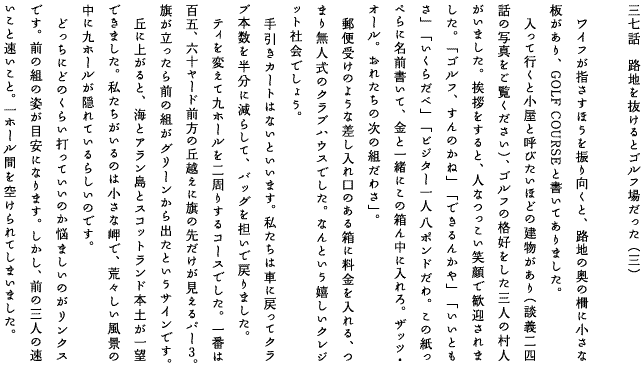 三七話　路地を抜けるとゴルフ場だった（三）
ワイフが指さすほうを振り向くと、路地の奥の柵に小さな
板があり、GOLF COURSEと書いてありました。
入って行くと小屋と呼びたいほどの建物があり（談義二四
話の写真をご覧ください）、ゴルフの格好をした三人の村人
がいました。挨拶をすると、人なつっこい笑顔で歓迎されま
した。「ゴルフ、すんのかね」「できるんかや」「いいとも
さ」「いくらだべ」「ビジター一人八ポンドだわ。この紙っ
ぺらに名前書いて、金と一緒にこの箱ん中に入れろ。ザッツ・
オール。おれたちの次の組だわさ」。
郵便受けのような差し入れ口のある箱に料金を入れる、つ
まり無人式のクラブハウスでした。なんという嬉しいクレジ
ット社会でしょう。
手引きカートはないといいます。私たちは車に戻ってクラ
ブ本数を半分に減らして、バッグを担いで戻りました。
ティを変えて九ホールを二周りするコースでした。一番は
百五、六十ヤード前方の丘越えに旗の先だけが見えるパー3。
旗が立ったら前の組がグリーンから出たというサインです。
丘に上がると、海とアラン島とスコットランド本土が一望
できました。私たちがいるのは小さな岬で、荒々しい風景の
中に九ホールが隠れているらしいのです。
どっちにどのくらい打っていいのか悩ましいのがリンクス
です。前の組の姿が目安になります。しかし、前の三人の速
いこと速いこと。一ホール間を空けられてしまいました。